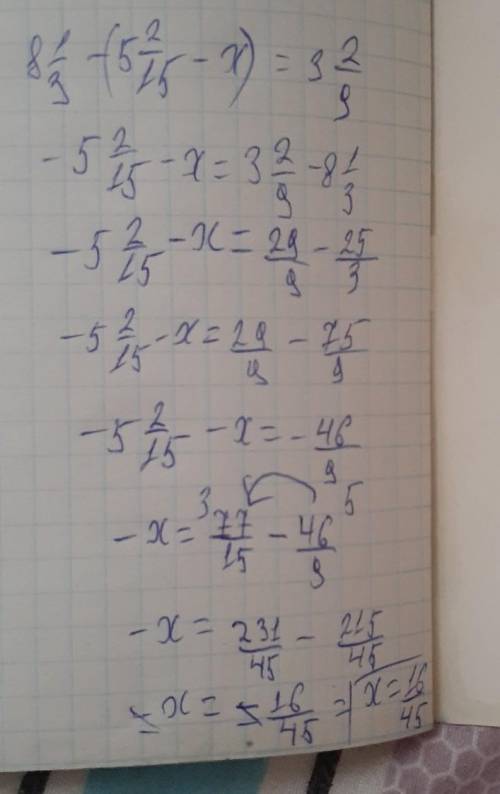 8 1/3 - (5 2/15 - x) = 3 2/9
- 5 2/15 - x = 3 2/9 - 8 1/3
- 5 2/15 - x = 29/9 - 25/3
- 5 2/15 - x = 29/9 - 75/9
- 5 2/15 - x = - 46/9
- x = 3 77/15 - 46/9 5
- x = 231/45 - 215/45
- x = - 16/45 = x = 16/45